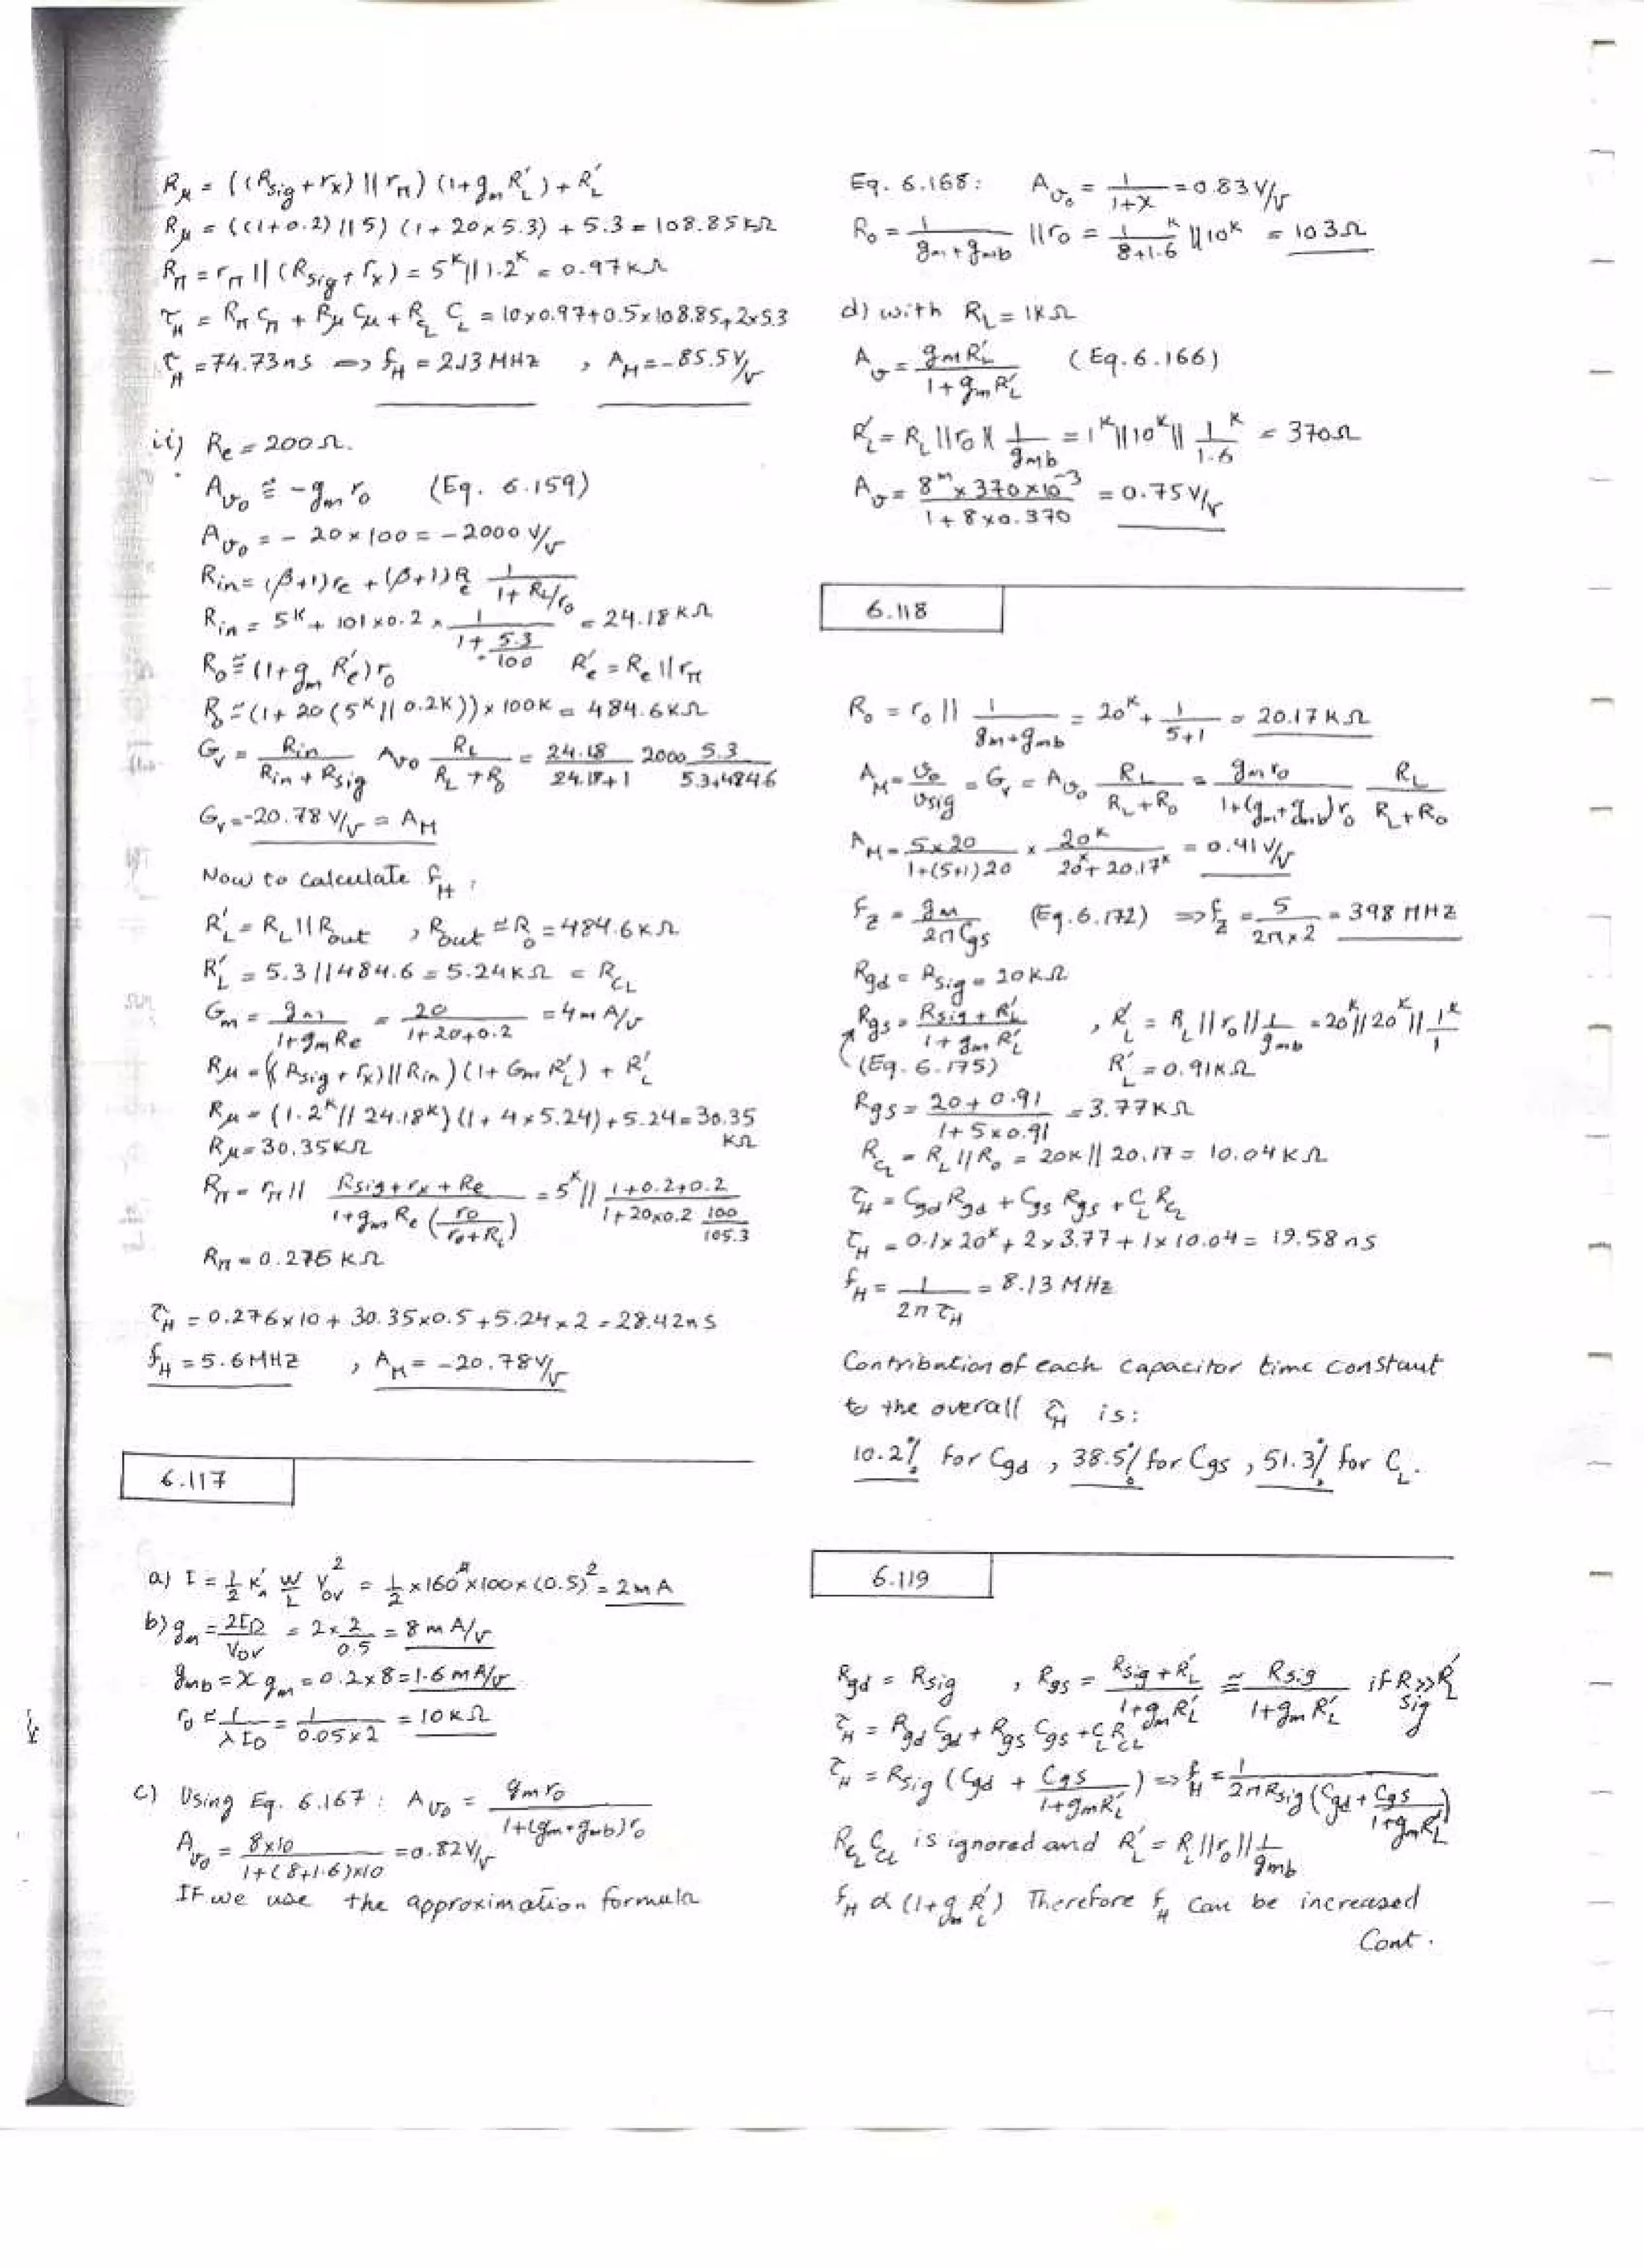 Rμ = ((Rsig + rx) || rπ) (1+gm R'L) + R'L
Rμ = ((1+0.2) || 5) (1 + 20×5.3) + 5.3 = 108.85 KΩ
Rπ = rπ || (Rsig + rx) = 5ᴷ || 1.2ᴷ = 0.97 KΩ
τH = Rπ Cπ + Rμ Cμ + RCL CL = 10×0.97+0.5×108.85+2×5.3
τH = 74.73 ns => fH = 2.13 MHz , AM = -85.5 V/v
ii) Re = 200 Ω.
Avo ≅ -gm ro (Eq. 6.159)
Avo = - 20 × 100 = -2000 V/v
Rin = (β+1)re + (β+1)Re 1/(1+ RL/ro)
Rin = 5ᴷ + 101×0.2 × 1/(1+ 5.3/100) = 24.18 KΩ
Ro ≅ (1+gm R'e) ro R'e = Re || rπ
Ro ≅ (1+ 20 (5ᴷ || 0.2K)) × 100K = 484.6 KΩ
Gv = Rin/(Rin + Rsig) Avo RL/(RL + Ro) = 24.18/(24.18+1) 2000 5.3/(5.3+484.6)
Gv = -20.78 V/v = AM
Now to calculate fH :
R'L = RL || Rout , Rout ≅ Ro = 484.6 KΩ
R'L = 5.3 || 484.6 = 5.24 KΩ = RCL
Gm = gm/(1+gm Re) = 20/(1+20+0.2) = 4 m A/v
Rμ = ((Rsig + rx) || Rin) (1+ Gm R'L) + R'L
Rμ = (1.2ᴷ || 24.18ᴷ) (1+ 4×5.24) + 5.24 = 30.35 KΩ
Rμ = 30.35 KΩ
Rπ = rπ || (Rsig + rx + Re)/(1+gm Re (ro/(ro+RL))) = 5ᴷ || (1+0.2+0.2)/(1+20×0.2 100/105.3)
Rπ = 0.276 KΩ
τH = 0.276×10 + 30.35×0.5 + 5.24×2 = 28.42 ns
fH = 5.6 MHz , AM = -20.78 V/v
6.117
a) I = 1/2 K'n W/L Vov² = 1/2 × 160μ × 100 × (0.5)² = 2 mA
b) gm = 2ID/Vov = 2 × 2/0.5 = 8 m A/v
gmb = χ gm = 0.2×8 = 1.6 mA/v
ro = 1/(λ ID) = 1/(0.05×2) = 10 KΩ
c) Using Eq. 6.167 : Avo = gm ro/(1+(gm+gmb)ro)
Avo = 8×10/(1+(8+1.6)×10) = 0.82 V/v
If we use the approximation formula
Eq. 6.168 : Avo = 1/(1+χ) = 0.83 V/v
Ro = 1/(gm + gmb) || ro = 1/(8+1.6) ᴷ || 10ᴷ = 103 Ω
d) with RL = 1KΩ
Av = gm R'L/(1+gm R'L) (Eq. 6.166)
R'L = RL || ro || 1/gmb = 1ᴷ || 10ᴷ || 1/1.6 ᴷ = 370 Ω
Av = 8ᵐ × 370×10⁻³/(1+8×0.370) = 0.75 V/v
6.118
Ro = ro || 1/(gm+gmb) = 20ᴷ + 1/(5+1) = 20.17 KΩ
AM = vo/vsig = Gv = Avo RL/(RL+Ro) = gm ro/(1+(gm+gmb)ro) RL/(RL+Ro)
AM = 5×20/(1+(5+1)20) × 20ᴷ/(20ᴷ+ 20.17ᴷ) = 0.41 V/v
fz = gm/(2π Cgs) (Eq. 6.172) => fz = 5/(2π×2) = 398 MHz
Rgd = Rsig = 20KΩ
Rgs = (Rsig + R'L)/(1+ gm R'L) , R'L = RL || ro || 1/gmb = 20ᴷ || 20ᴷ || 1ᴷ/1
(Eq. 6.175) R'L = 0.91KΩ
Rgs = (20+0.91)/(1+5×0.91) = 3.77 KΩ
RCL = RL || Ro = 20K || 20.17 = 10.04 KΩ
τH = Cgd Rgd + Cgs Rgs + CL RCL
τH = 0.1×20ᴷ + 2×3.77 + 1×10.04 = 19.58 ns
fH = 1/(2π τH) = 8.13 MHz
Contribution of each capacitor time constant
to the overall τH is:
10.2% for Cgd , 38.5% for Cgs , 51.3% for CL.
6.119
Rgd = Rsig , Rgs = (Rsig + R'L)/(1+gm R'L) ≅ Rsig/(1+gm R'L) if Rsig >> R'L
τH = Rgd Cgd + Rgs Cgs + CL RCL
τH = Rsig (Cgd + Cgs/(1+gm R'L)) => fH = 1/(2π Rsig (Cgd + Cgs/(1+gm R'L)))
RCL CL is ignored and R'L = RL || ro || 1/gmb
fH α (1+gm R'L) Therefore fH can be increased
Cont.